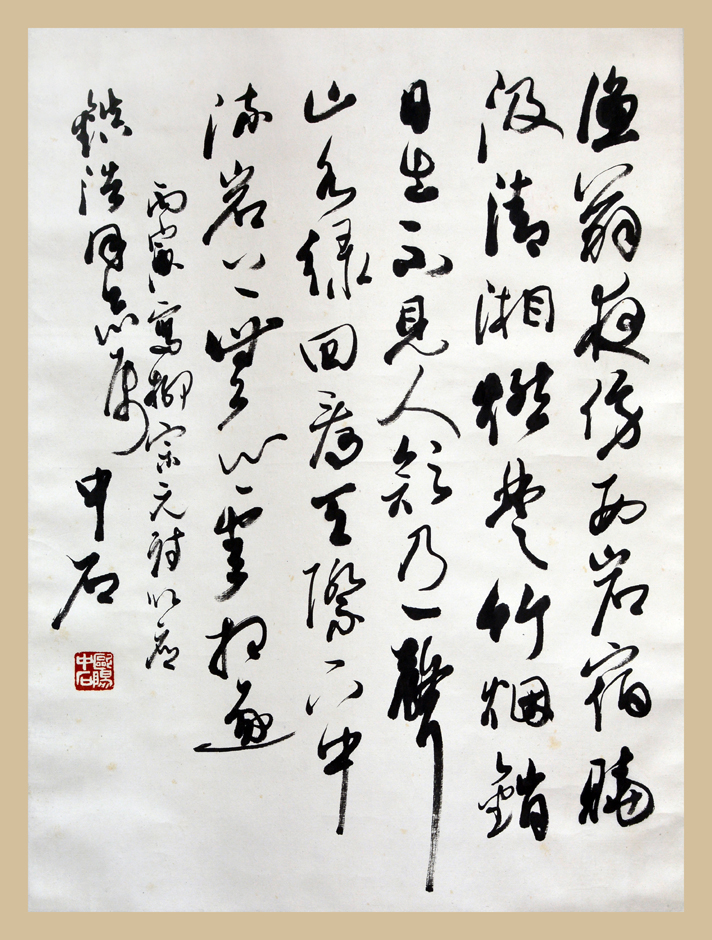 漁翁夜傍西岩宿曉
汲清湘燃楚竹烟銷
日出不見人欸乃一聲
山水綠回看天際下中
流岩上無心雲相逐
丙寅寫柳宗元詩以應
浩同志属
中石
歐陽中石